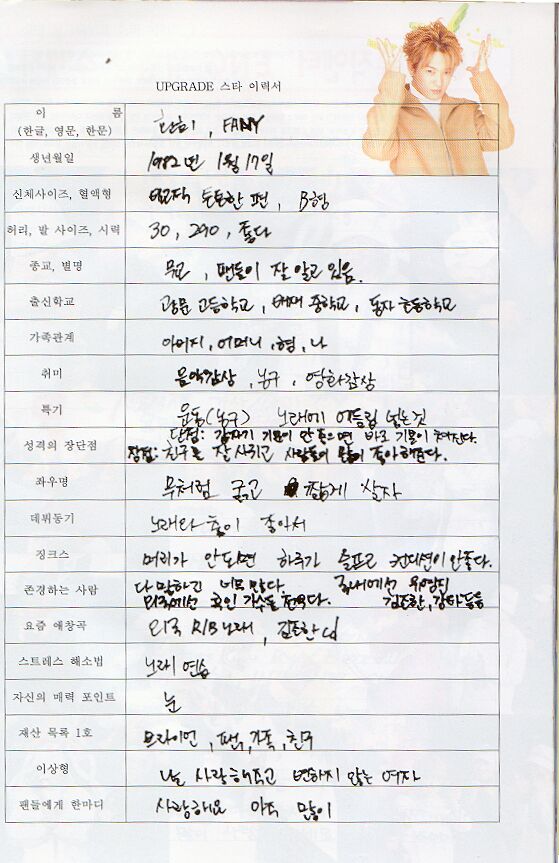 UPGRADE 스타 이력서
이 름
(한글, 영문, 한문)
환희, FANY
생년월일
1982년 1월 17일
신체사이즈, 혈액형
튼튼한 편, B형
허리, 발 사이즈, 시력
30, 290, 좋다
종교, 별명
무교, 팬들이 잘 알고 있음.
출신학교
광문 고등학교, 배재 중학교, 동자 초등학교
가족관계
아버지, 어머니, 형, 나
취미
음악감상, 농구, 영화감상
특기
운동(농구) 노래에 어드립 넣는것
성격의 장단점
단점: 갑자기 기분이 안 좋으면 바로 기분이 쳐진다.
장점: 친구를 잘 사귀고 사람들이 많이 좋아해준다.
좌우명
무처럼 굵고 짧게 살자
데뷔동기
노래와 춤이 좋아서
징크스
머리가 안되면 하루가 슬프고 컨디션이 안좋다.
존경하는 사람
다 말하긴 너무 많다. 국내에선 유영진
외국에선 흑인 가수들 전부다. 김조한, 강타등등
요즘 애창곡
외국 R/B노래, 김조한cd
스트레스 해소법
노래 연습
자신의 매력 포인트
눈
재산 목록 1호
브라이언, 팬, 가족, 친구
이상형
날 사랑해주고 변하지 않는 여자
팬들에게 한마디
사랑해요 아주 많이